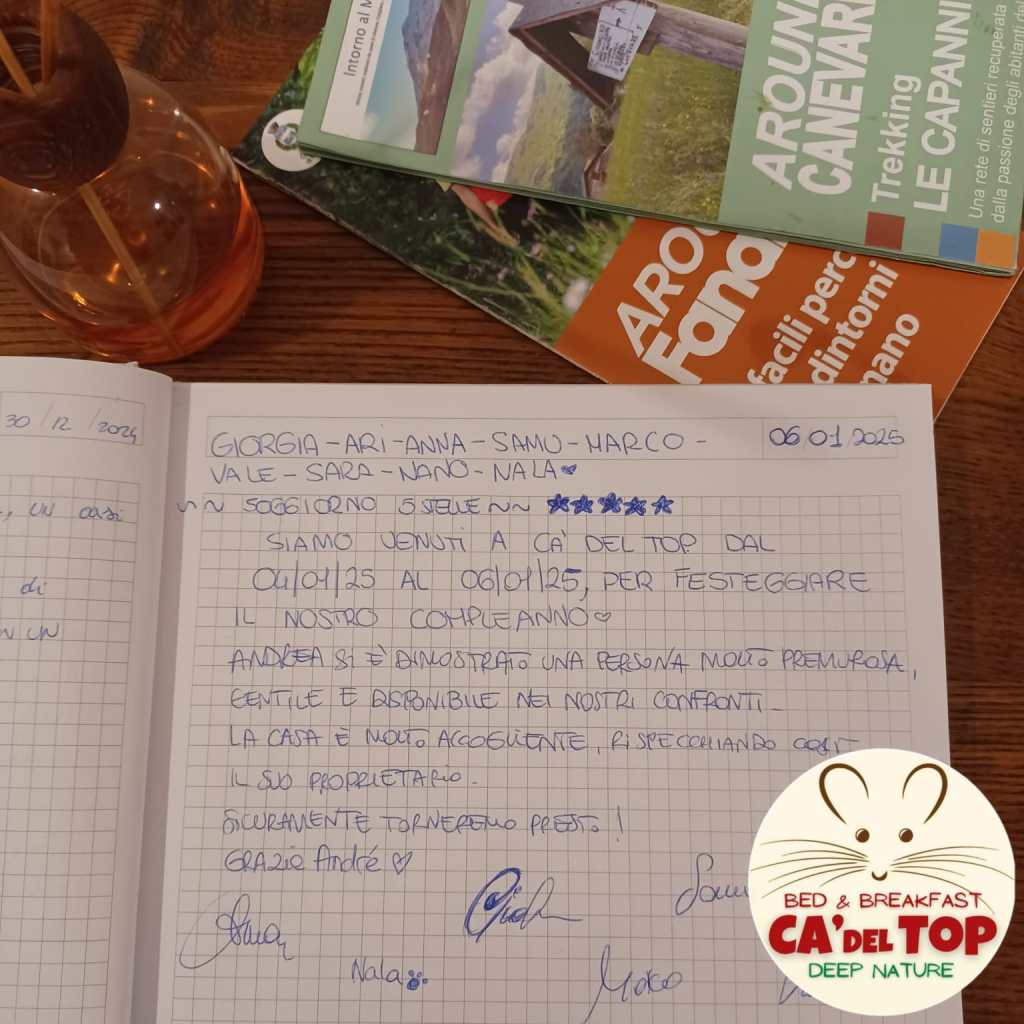 Intorno al M
AROUN
CANEVAR
Trekking
LE CAPANN
Una rete di sentieri recuperata
dalla passione degli abitanti del
AROU
Fana
facili perc
dintorni
nano
30/12/2024
, UN
di
UN
GIORGIA-ARI-ANNA-SAMU-MARCO-
06/01/2025
VALE-SARA-NANO-NALA
~~ SOGGIORNO 5 STELLE ~~ ★★★★★
SIAMO VENUTI A CA' DEL TOP DAL
04/01/25 AL 06/01/25, PER FESTEGGIARE
IL NOSTRO COMPLEANNO ♡
ANDREA SI È DIMOSTRATO UNA PERSONA MOLTO PREMUROSA,
GENTILE E DISPONIBILE NEI NOSTRI CONFRONTI.
LA CASA È MOLTO ACCOGLIENTE, RISPECCHIANDO COSÌ
IL SUO PROPRIETARIO.
SICURAMENTE TORNEREMO PRESTO!
GRAZIE André ♡
Nala
BED & BREAKFAST
CA' DEL TOP
DEEP NATURE